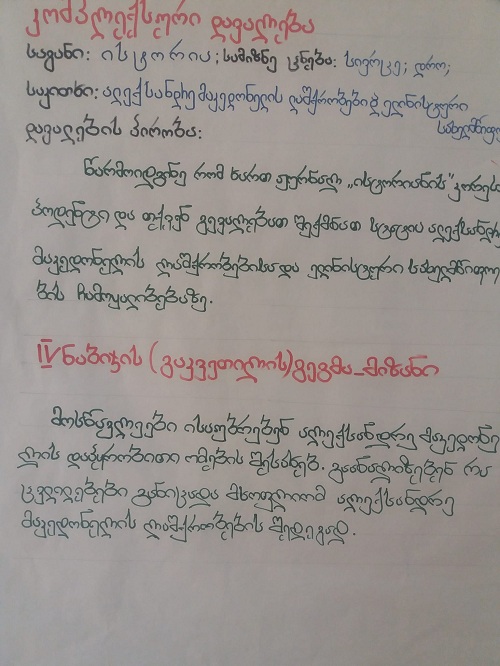 კომპლექსური დავალება
საგანი: ისტორია; სამიზნე ცნება: სივრცე; დრო;
საკითხი: ალექსანდრე მაკედონელის ლაშქრობები და ელინისტური
სახელმწიფო
დავალების პირობა:
წარმოიდგინე რომ ხართ ჟურნალ „ისტორიანის" კორეს
პოდენტი და თქვენ გევალებათ შექმნათ სტატია ალექსანდრე
მაკედონელის ლაშქრობებისა და ელინისტური სახელმწიფოე
ბის ჩამოყალიბებაზე.
IV ნაბიჯის (გაკვეთილის) გეგმა_მიზანი
მოსწავლეები ისაუბრებენ ალექსანდრე მაკედონე
ლის დაპყრობითი ომების შესახებ. გაანალიზებენ რა
ცვლილებები განიცადა მსოფლიომ ალექსანდრე
მაკედონელის ლაშქრობების შედეგად.